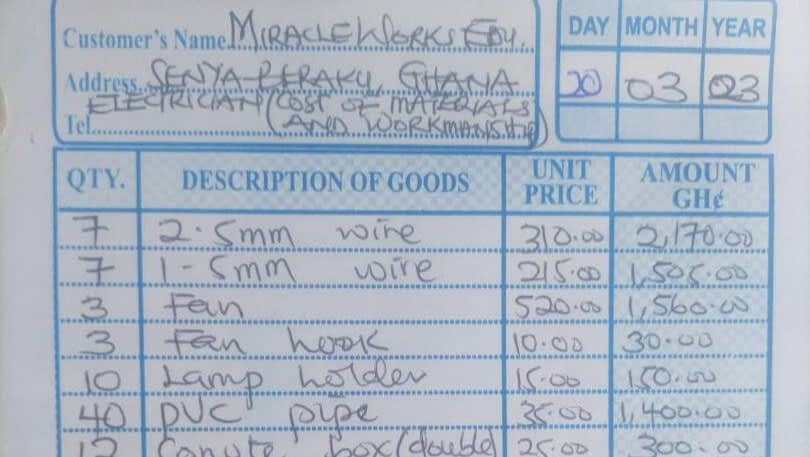 Customer's Name MIRACLE WORKS EDU.
DAY MONTH YEAR
Address SENYA-BERAKU, GHANA
20 03 023
ELECTRICIAN (COST OF MATERIALS
Tel. AND WORKMANSHIP)
QTY. DESCRIPTION OF GOODS UNIT PRICE AMOUNT GH¢
7 2.5mm wire 310.00 2,170.00
7 1-5mm wire 215.00 1,505.00
3 Fan 520.00 1,560.00
3 Fan hook 10.00 30.00
10 Lamp holder 15.00 150.00
40 PVC pipe 35.00 1,400.00
12 Conute box (double) 25.00 300.00